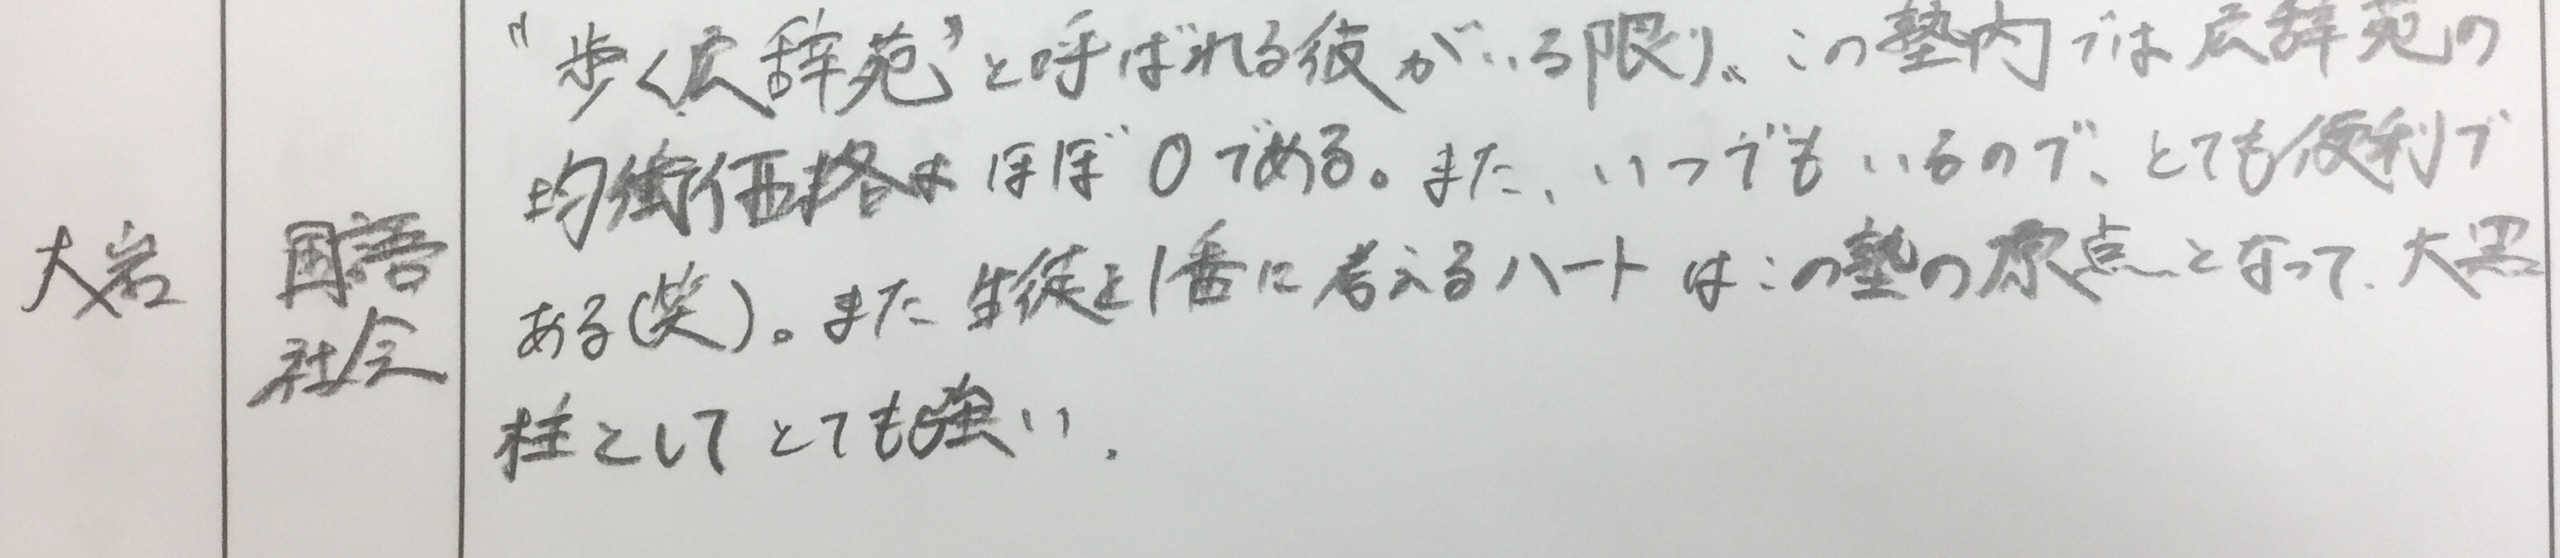 大岩
国語
社会
"歩く広辞苑"と呼ばれる彼がいる限り、この塾内では広辞苑の
均衡価格はほぼ0である。また、いつでもいるので、とても便利で
ある(笑)。また生徒を1番に考えるハートはこの塾の原点となって、大黒
柱としてとても強い.